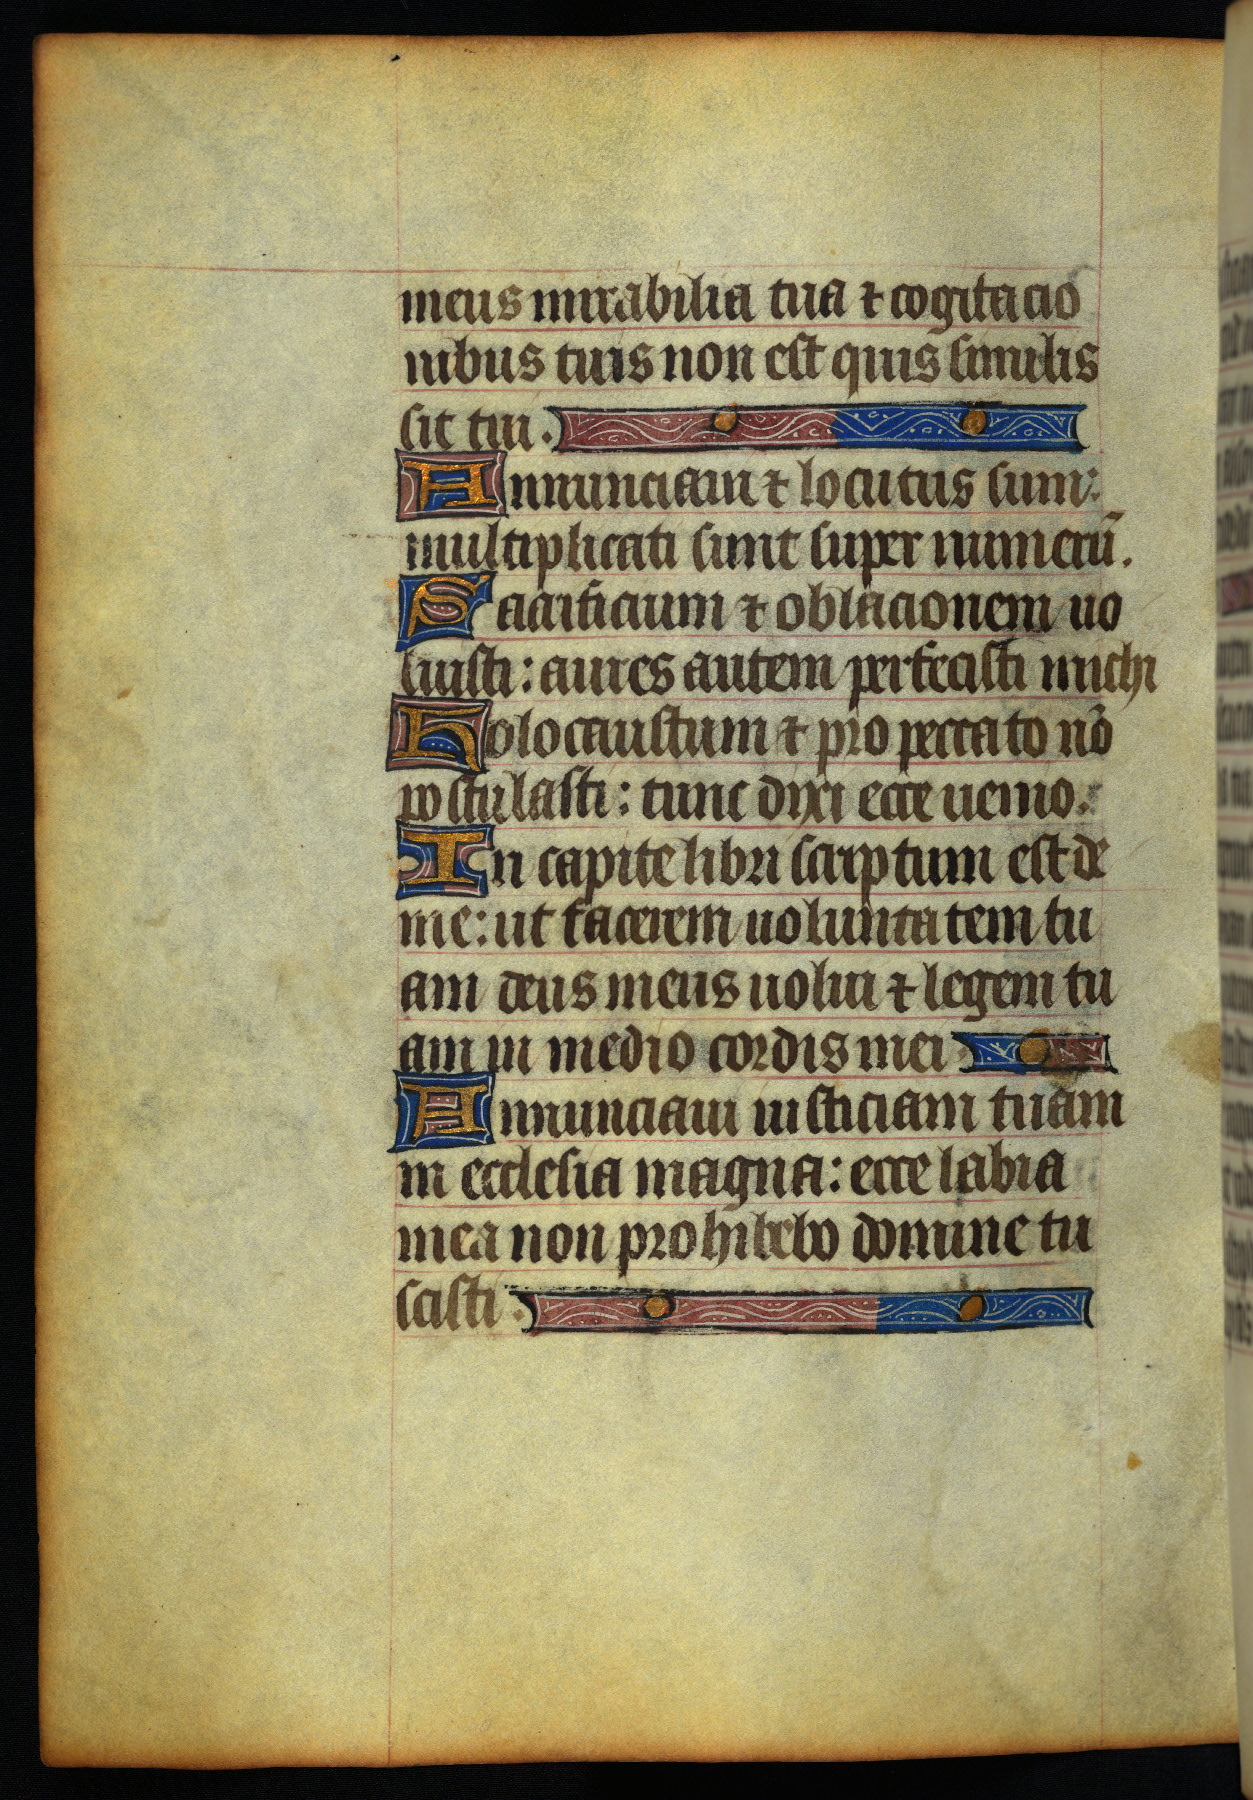 meus mirabilia tua ⁊ cogitacio
nibus tuis non est quis similis
sit tui.
Annunciaui ⁊ locutus sum:
multiplicati sunt super numerū.
Sacrificium ⁊ oblacionem uo
luisti: aures autem perfecisti michi
Holocaustum ⁊ pro peccato nō
postulasti: tunc dixi ecce uenio.
In capite libri scriptum est de
me: ut facerem uoluntatem tu
am deus meus uolui ⁊ legem tu
am in medio cordis mei
Annunciaui iusticiam tuam
in ecclesia magna: ecce labia
mea non prohibebo domine tu
scisti.